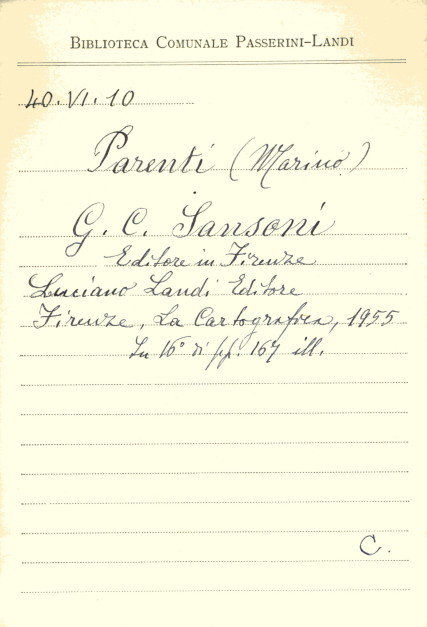 BIBLIOTECA COMUNALE PASSERINI-LANDI
40.VI.10
Parenti (Marino)
G. C. Sansoni
Editore in Firenze
Luciano Landi Editore
Firenze, La Cartografica, 1955
In 16° di pp. 167 ill.
C.